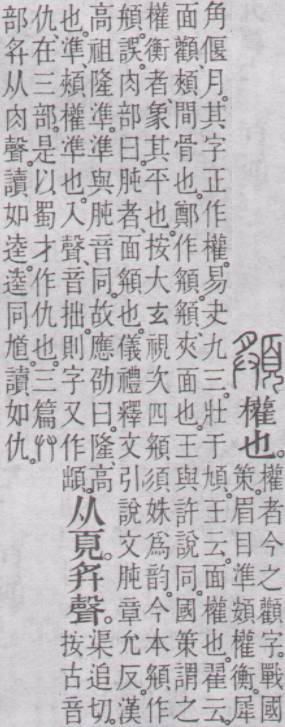 頯權也。
權者今之顴字。戰國
策。眉目準頞權衡。犀
角偃月。其字正作權。易夬九三。壯于頄。王云。面權也。翟云。
面顴頰間骨也。鄭作頯。頯夾面也。王與許說同。國策謂之
權衡者。象其平也。按大玄視次四。頯須姝為韵。今本頯作
頯誤。肉部曰。肫者。面頯也。儀禮釋文引說文肫章允反。漢
高祖隆準。準與肫音同。故應劭曰。隆、高
也。準頰權準也。入聲、音拙。則字又作䪼。
从頁𢍏聲。
渠追切。
按古音
仇、在三部。是以蜀才作仇也。三篇𠬞
部𢍏从肉聲。讀如逵。逵同馗。讀如仇。